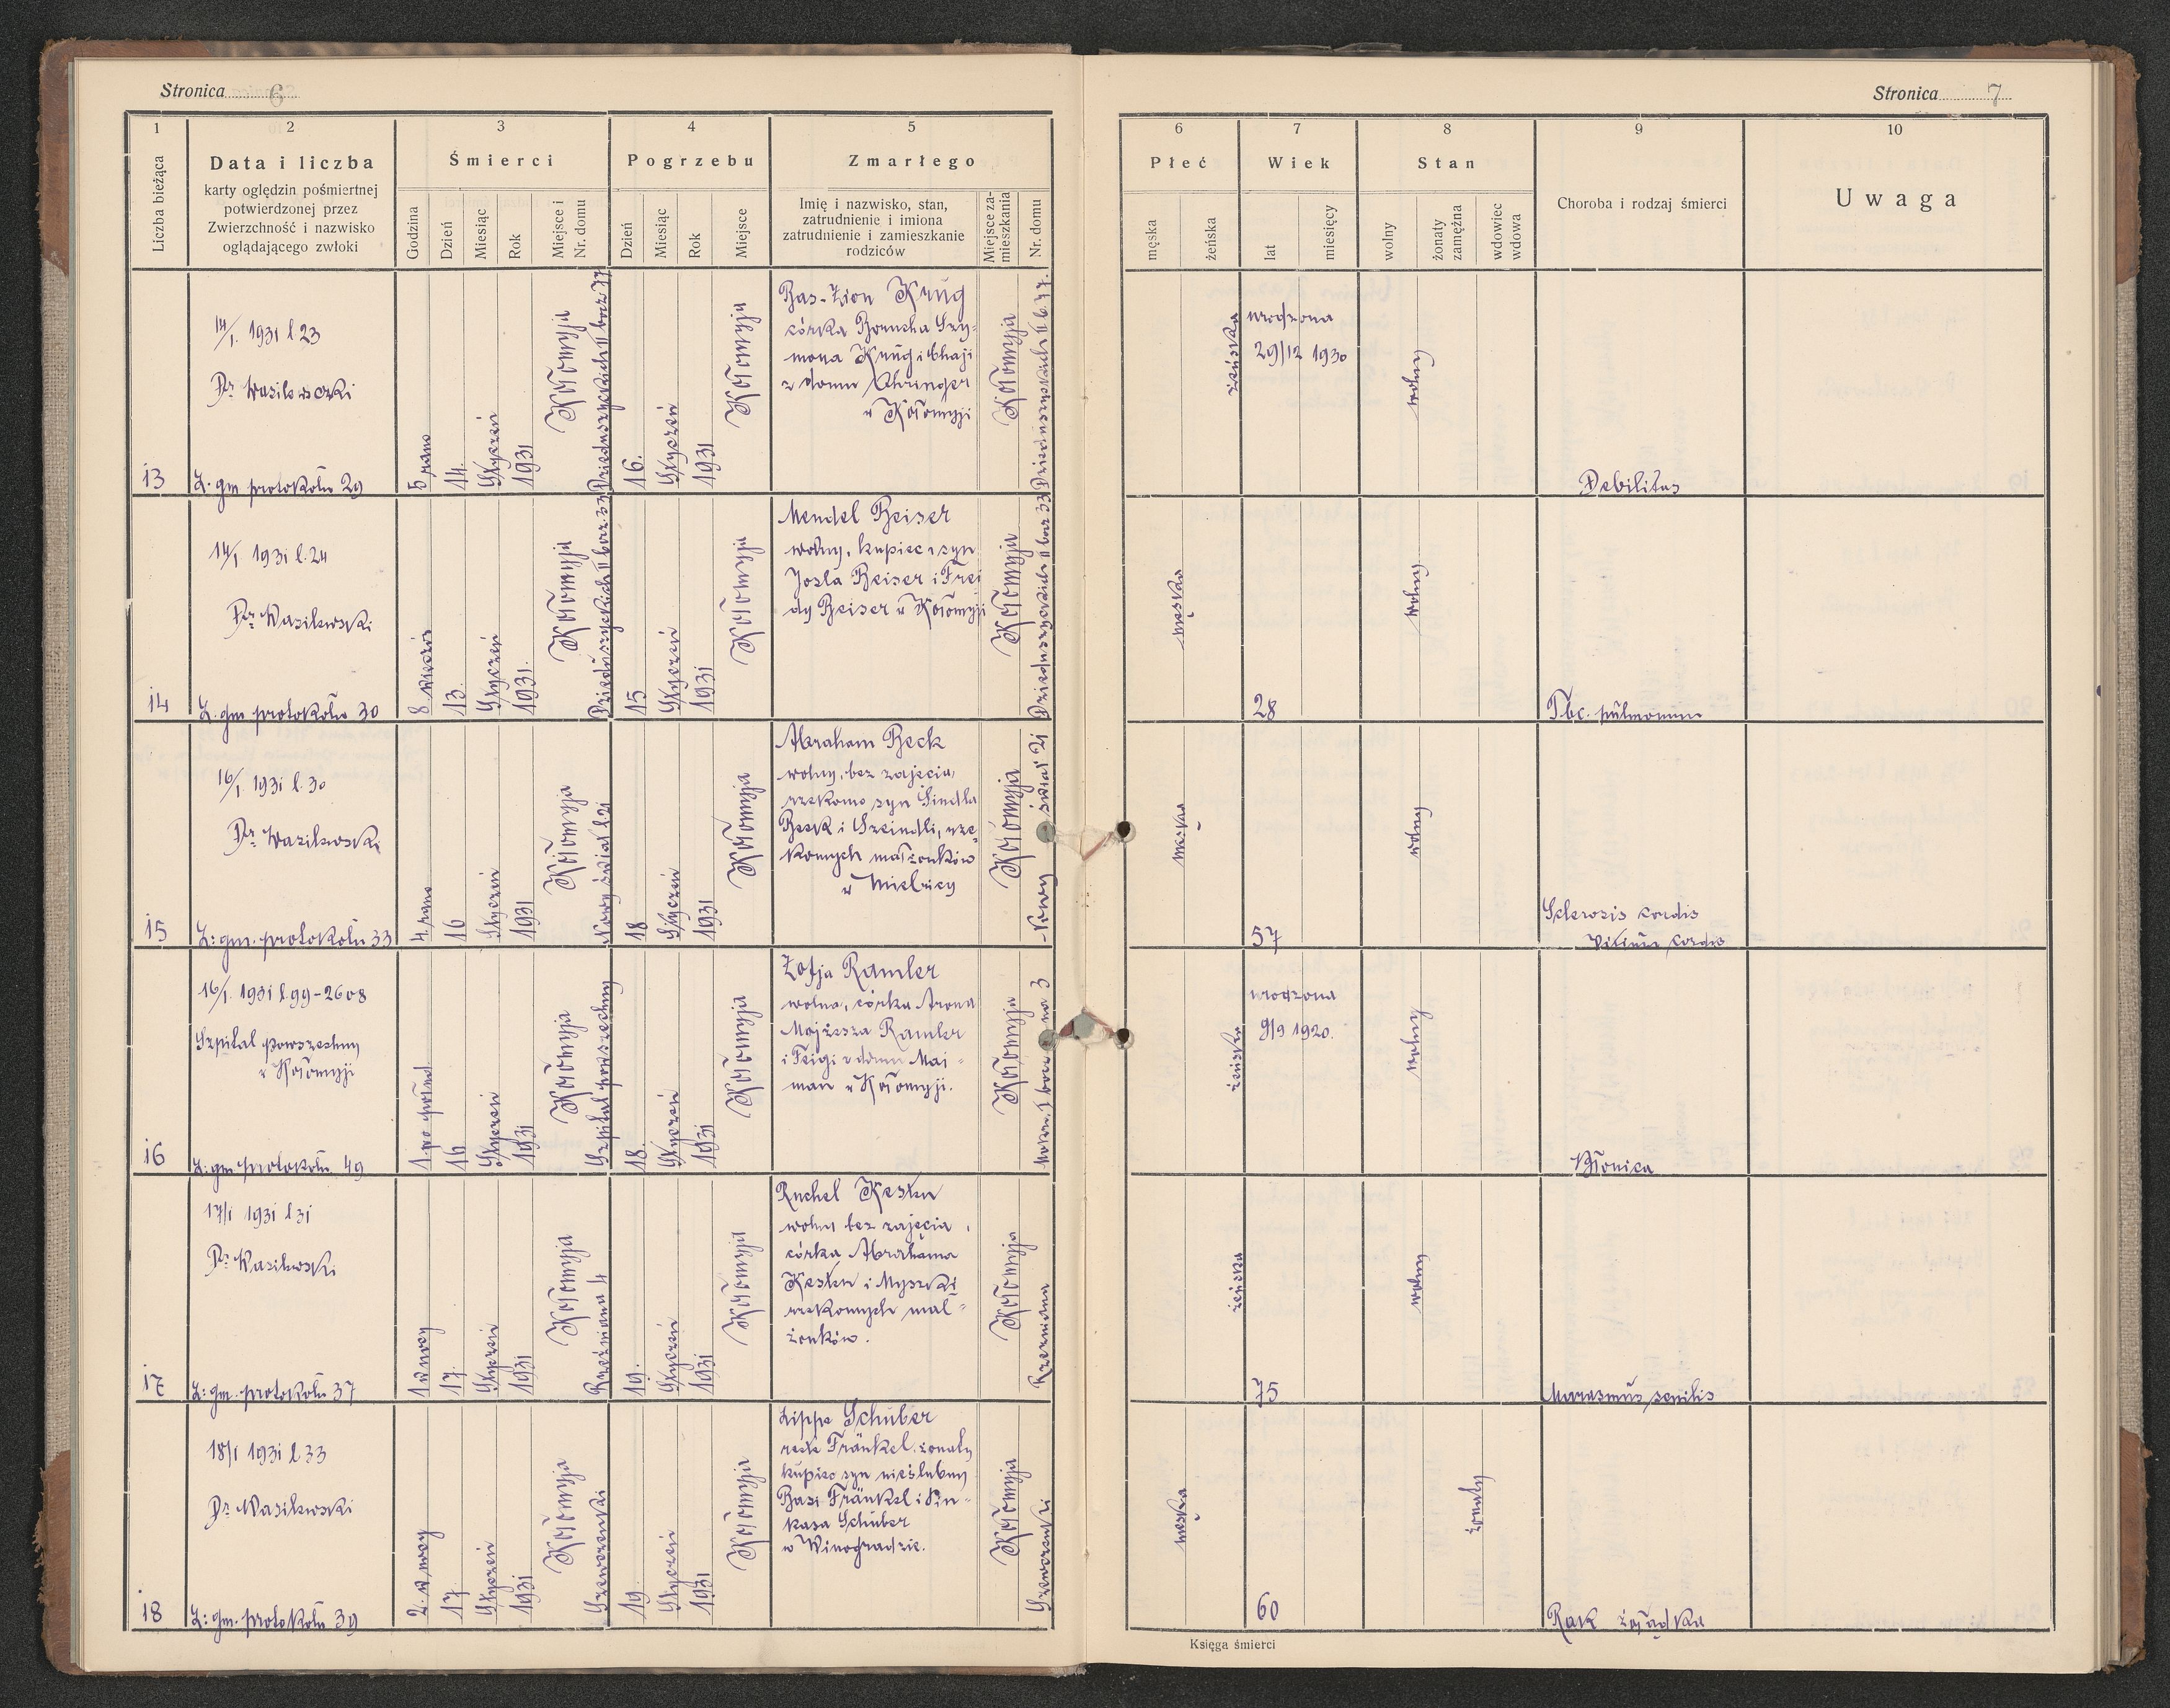 Stronica 6
1
2
3
4
5
Liczba bieżąca
Data i liczba
karty oględzin pośmiertnej
potwierdzonej przez
Zwierzchność i nazwisko
oglądającego zwłoki
Śmierci
Godzina
Dzień
Miesiąc
Rok
Miejsce i
Nr. domu
Pogrzebu
Dzień
Miesiąc
Rok
Miejsce
Zmarłego
Imię i nazwisko, stan,
zatrudnienie i imiona
zatrudnienie i zamieszkanie
rodziców
Miejsce za-
mieszkania
Nr. domu
13
14/I. 1931 l 23
Dr Wasilewski
L. gm protokołu 29
5 rano
14.
Styczeń
1931
Kołomyja
Dzieduszyckich II bocz 77
16.
Styczeń
1931
Kołomyja
Bas-Zion Krug
córka Borucha Szy-
mona Krug i Chaji
z domu Ehringer
w Kołomyji
Kołomyja
Dzieduszyckich II b. 77.
14
14/I 1931 l. 24
Dr Wasilewski
L. gm protokołu 30
8 wiecz
13.
Styczeń
1931.
Kołomyja
Dzieduszyckich II bocz. 33
15
Styczeń
1931
Kołomyja
Mendel Beiser
wolny, kupiec, syn
Josla Beiser i Frei
dy Beiser w Kołomyji
Kołomyja
Dzieduszyckich II bocz 33
15
16/I 1931 l. 30
Dr Wasilewski
L: gm. protokołu 33
4 rano
16
Styczeń
1931
Kołomyja
Nowy świat 21
18
Styczeń
1931
Kołomyja
Abraham Beck
wolny, bez zajęcia,
rzekomo syn
Beck i Szeindli, rze-
komych małżonków
w Mielnicy
Kołomyja
Nowy świat 21
16
16/I. 1931 l 99-2608
Szpital powszechny
w Kołomyji
L: gm protokołu 49
1 po połud
16
Styczeń
1931
Kołomyja
Szpital powszechny
18.
Styczeń
1931
Kołomyja
Zofja Ramler
wolna, córka Arona
Mojżesza Ramler
i Feigi z domu Mai-
man w Kołomyji.
Kołomyja
17
17/I 1931 l 31
Dr Wasilewski
L: gm. protokołu 37
1 w nocy
17.
Styczeń
1931
Kołomyja
Rzeźniana 4
19.
Styczeń
1931
Kołomyja
Ruchel Kesten
wolna bez zajęcia,
córka Abrahama
Kesten i Myszki
rzekomych mał-
żonków.
Kołomyja
Rzeźniana
18
18/I 1931 l 33
Dr Wasilewski
L: gm. protokołu 39
2. w nocy
17.
Styczeń
1931
Kołomyja
Szewczenki
19
Styczeń
1931
Kołomyja
Lippe Schuber
recte Fränkel, żonaty
kupiec syn nieślubny
Basi Fränkel i Pin-
kasa Schuber
w Winogradzie.
Kołomyja
Szewczenki
Stronica 7
6
7
8
9
10
Płeć
męska
żeńska
Wiek
lat
miesięcy
Stan
wolny
żonaty
zamężna
wdowiec
wdowa
Choroba i rodzaj śmierci
Uwaga
żeńska
urodzona
29/12 1930
wolny
Debilitas
męska
28
wolny
Tbc. pulmonum
męska
57
wolny
Sclerosis cordis
Vitium cordis
żeńska
urodzona
9/9 1920.
wolny
Błonica
żeńska
75
wolny
Marasmus senilis
męska
60
żonaty
Rak żołądka
Księga śmierci